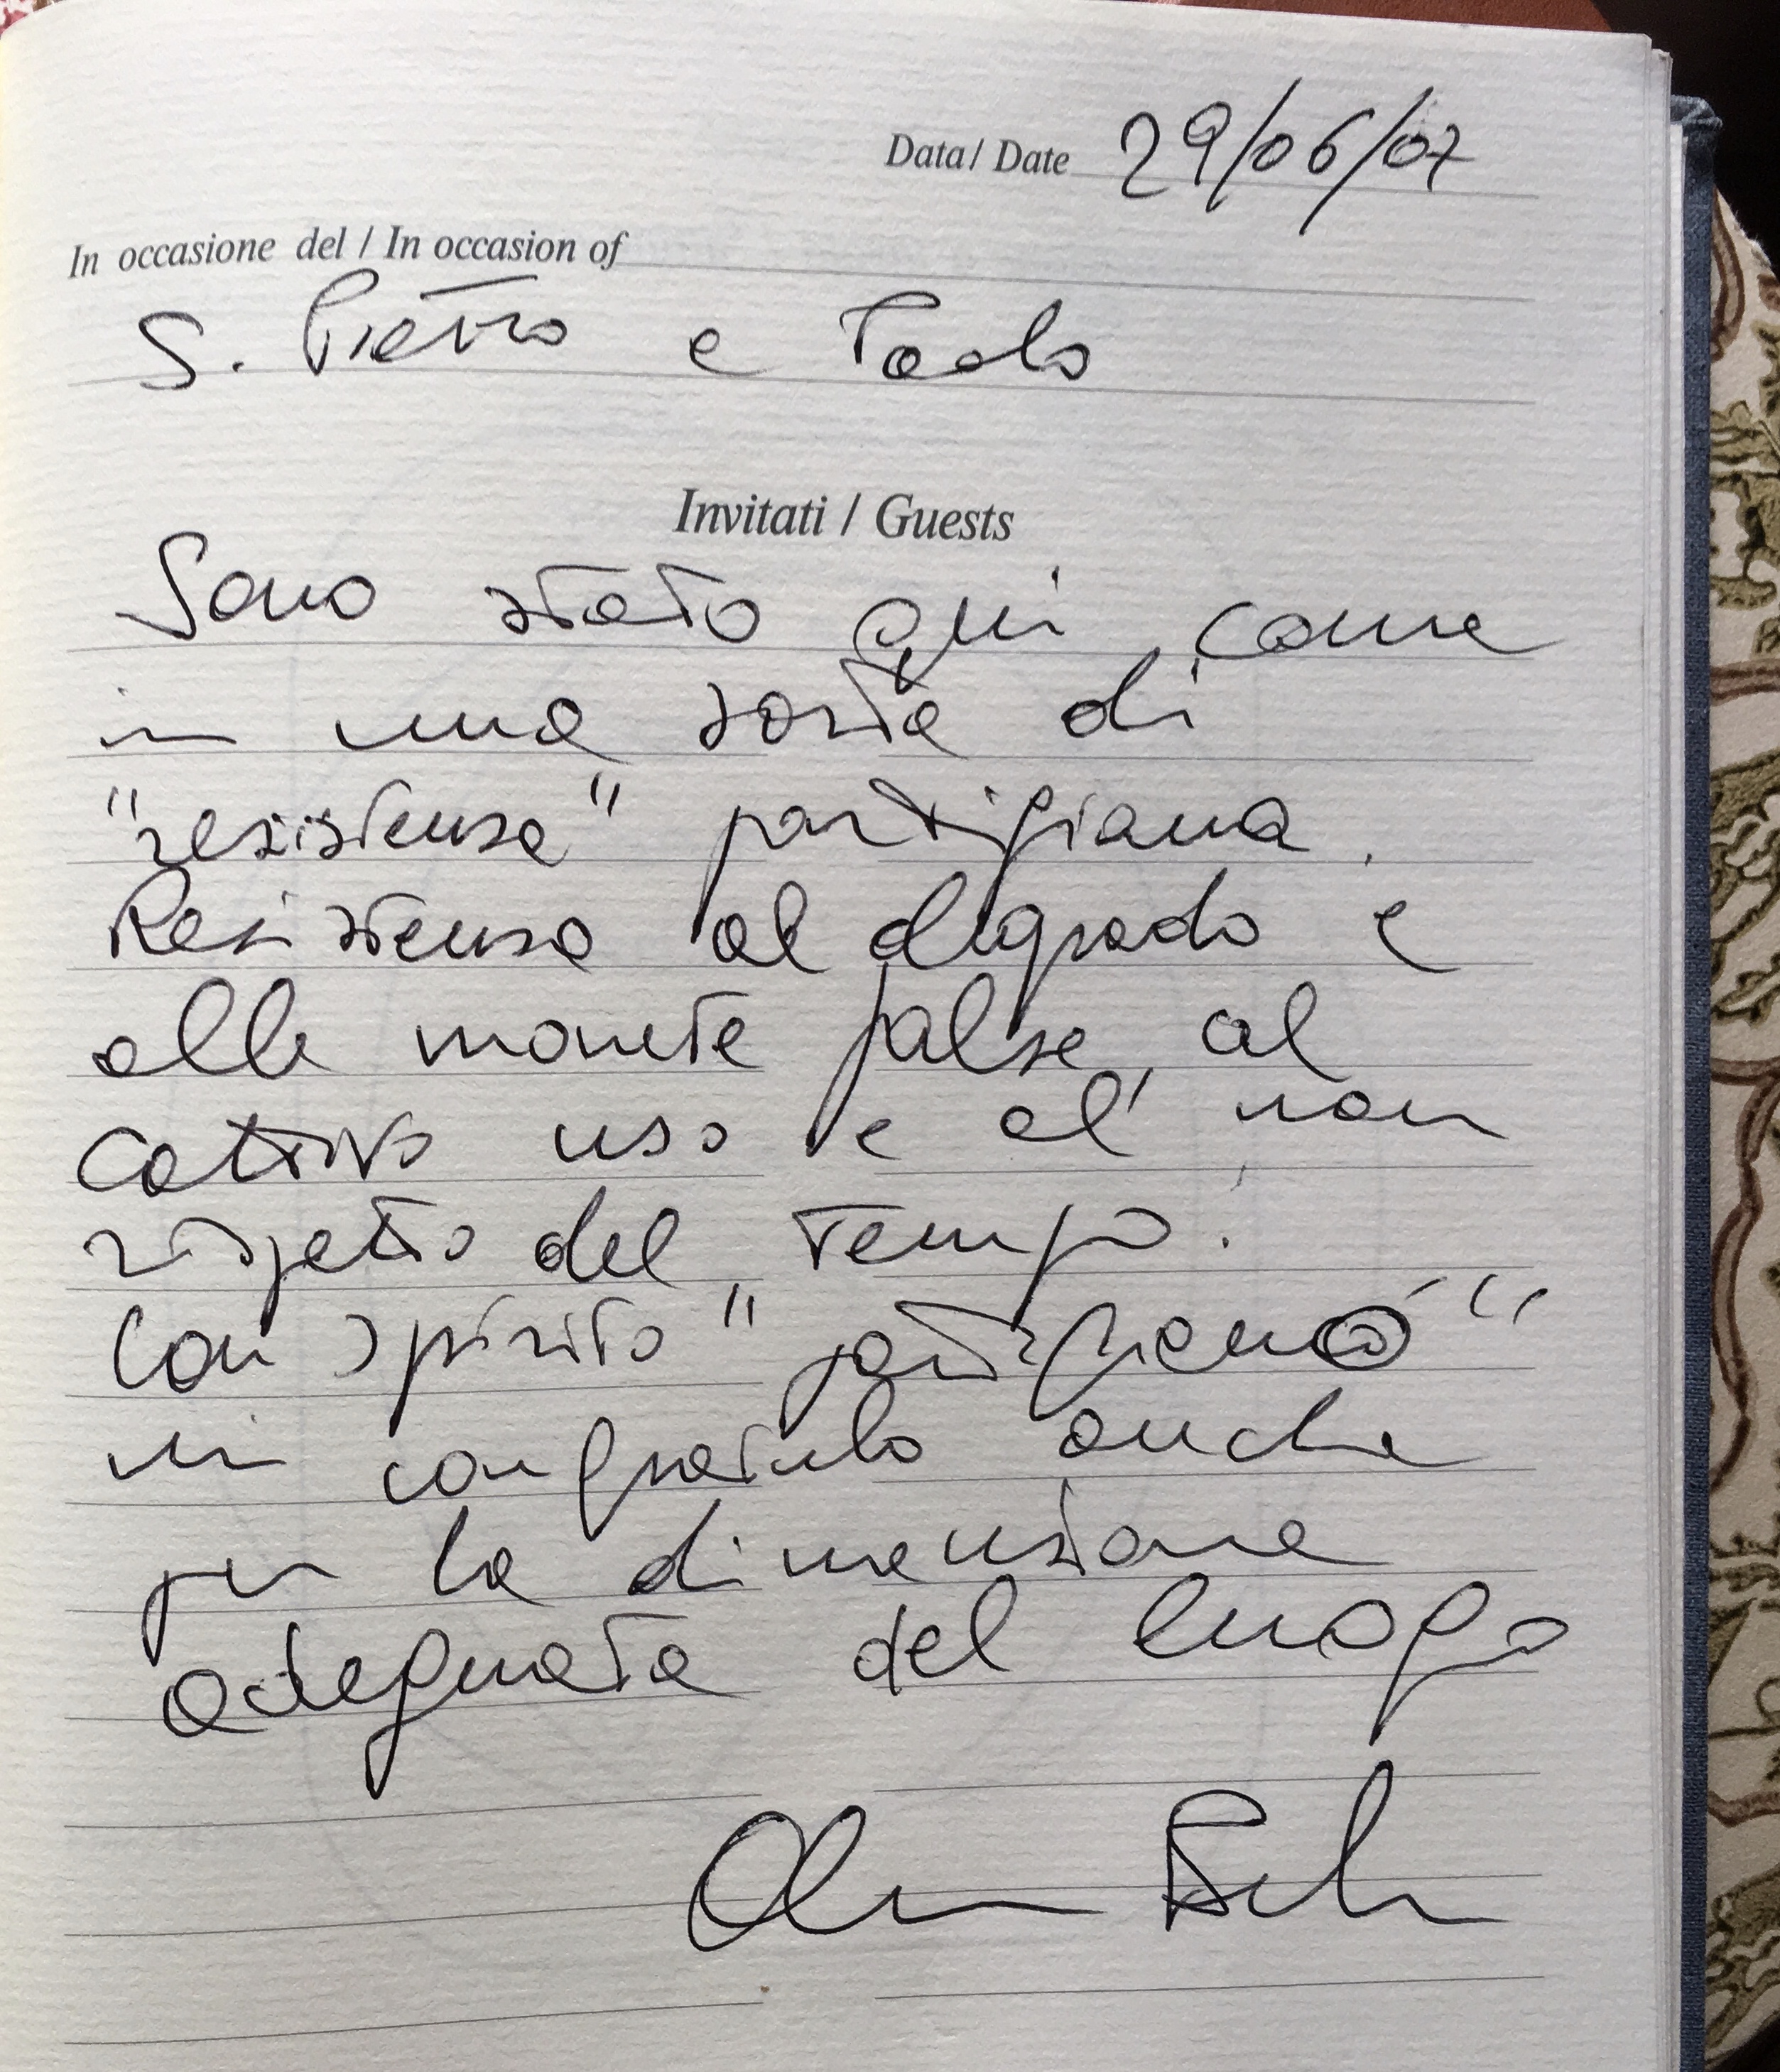 Data / Date 29/06/07
In occasione del / In occasion of
S. Pietro e Paolo
Invitati / Guests
Sono stato qui come
in una sorta di
"resistenza" partigiana.
Resistenza al degrado e
alle monete false, al
cattivo uso e al non
rispetto del tempo.
Con spirito "partigiano"
mi congratulo anche
per la dimensione
adeguata del luogo